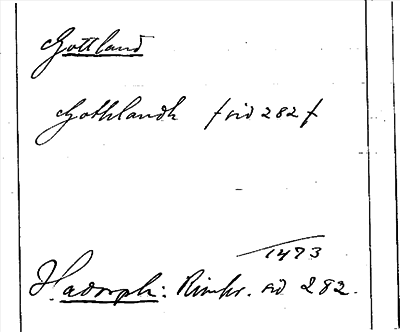 Gottland
Gothlandh / sid 282 /
1473
Hadorph: Rimkr. sid 282.